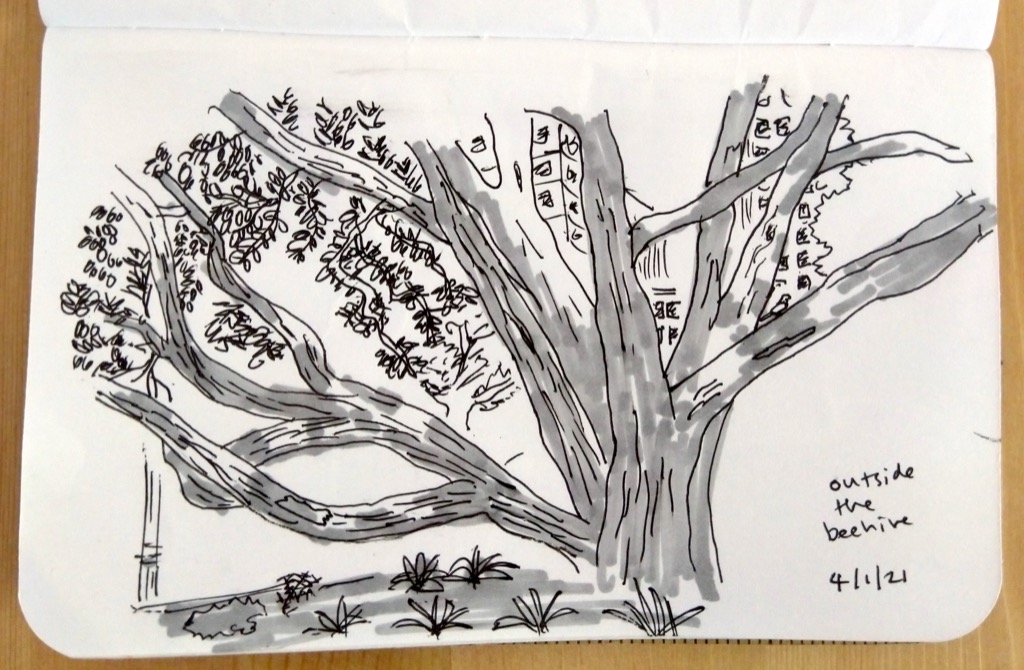 outside
the
beehive
4/1/21